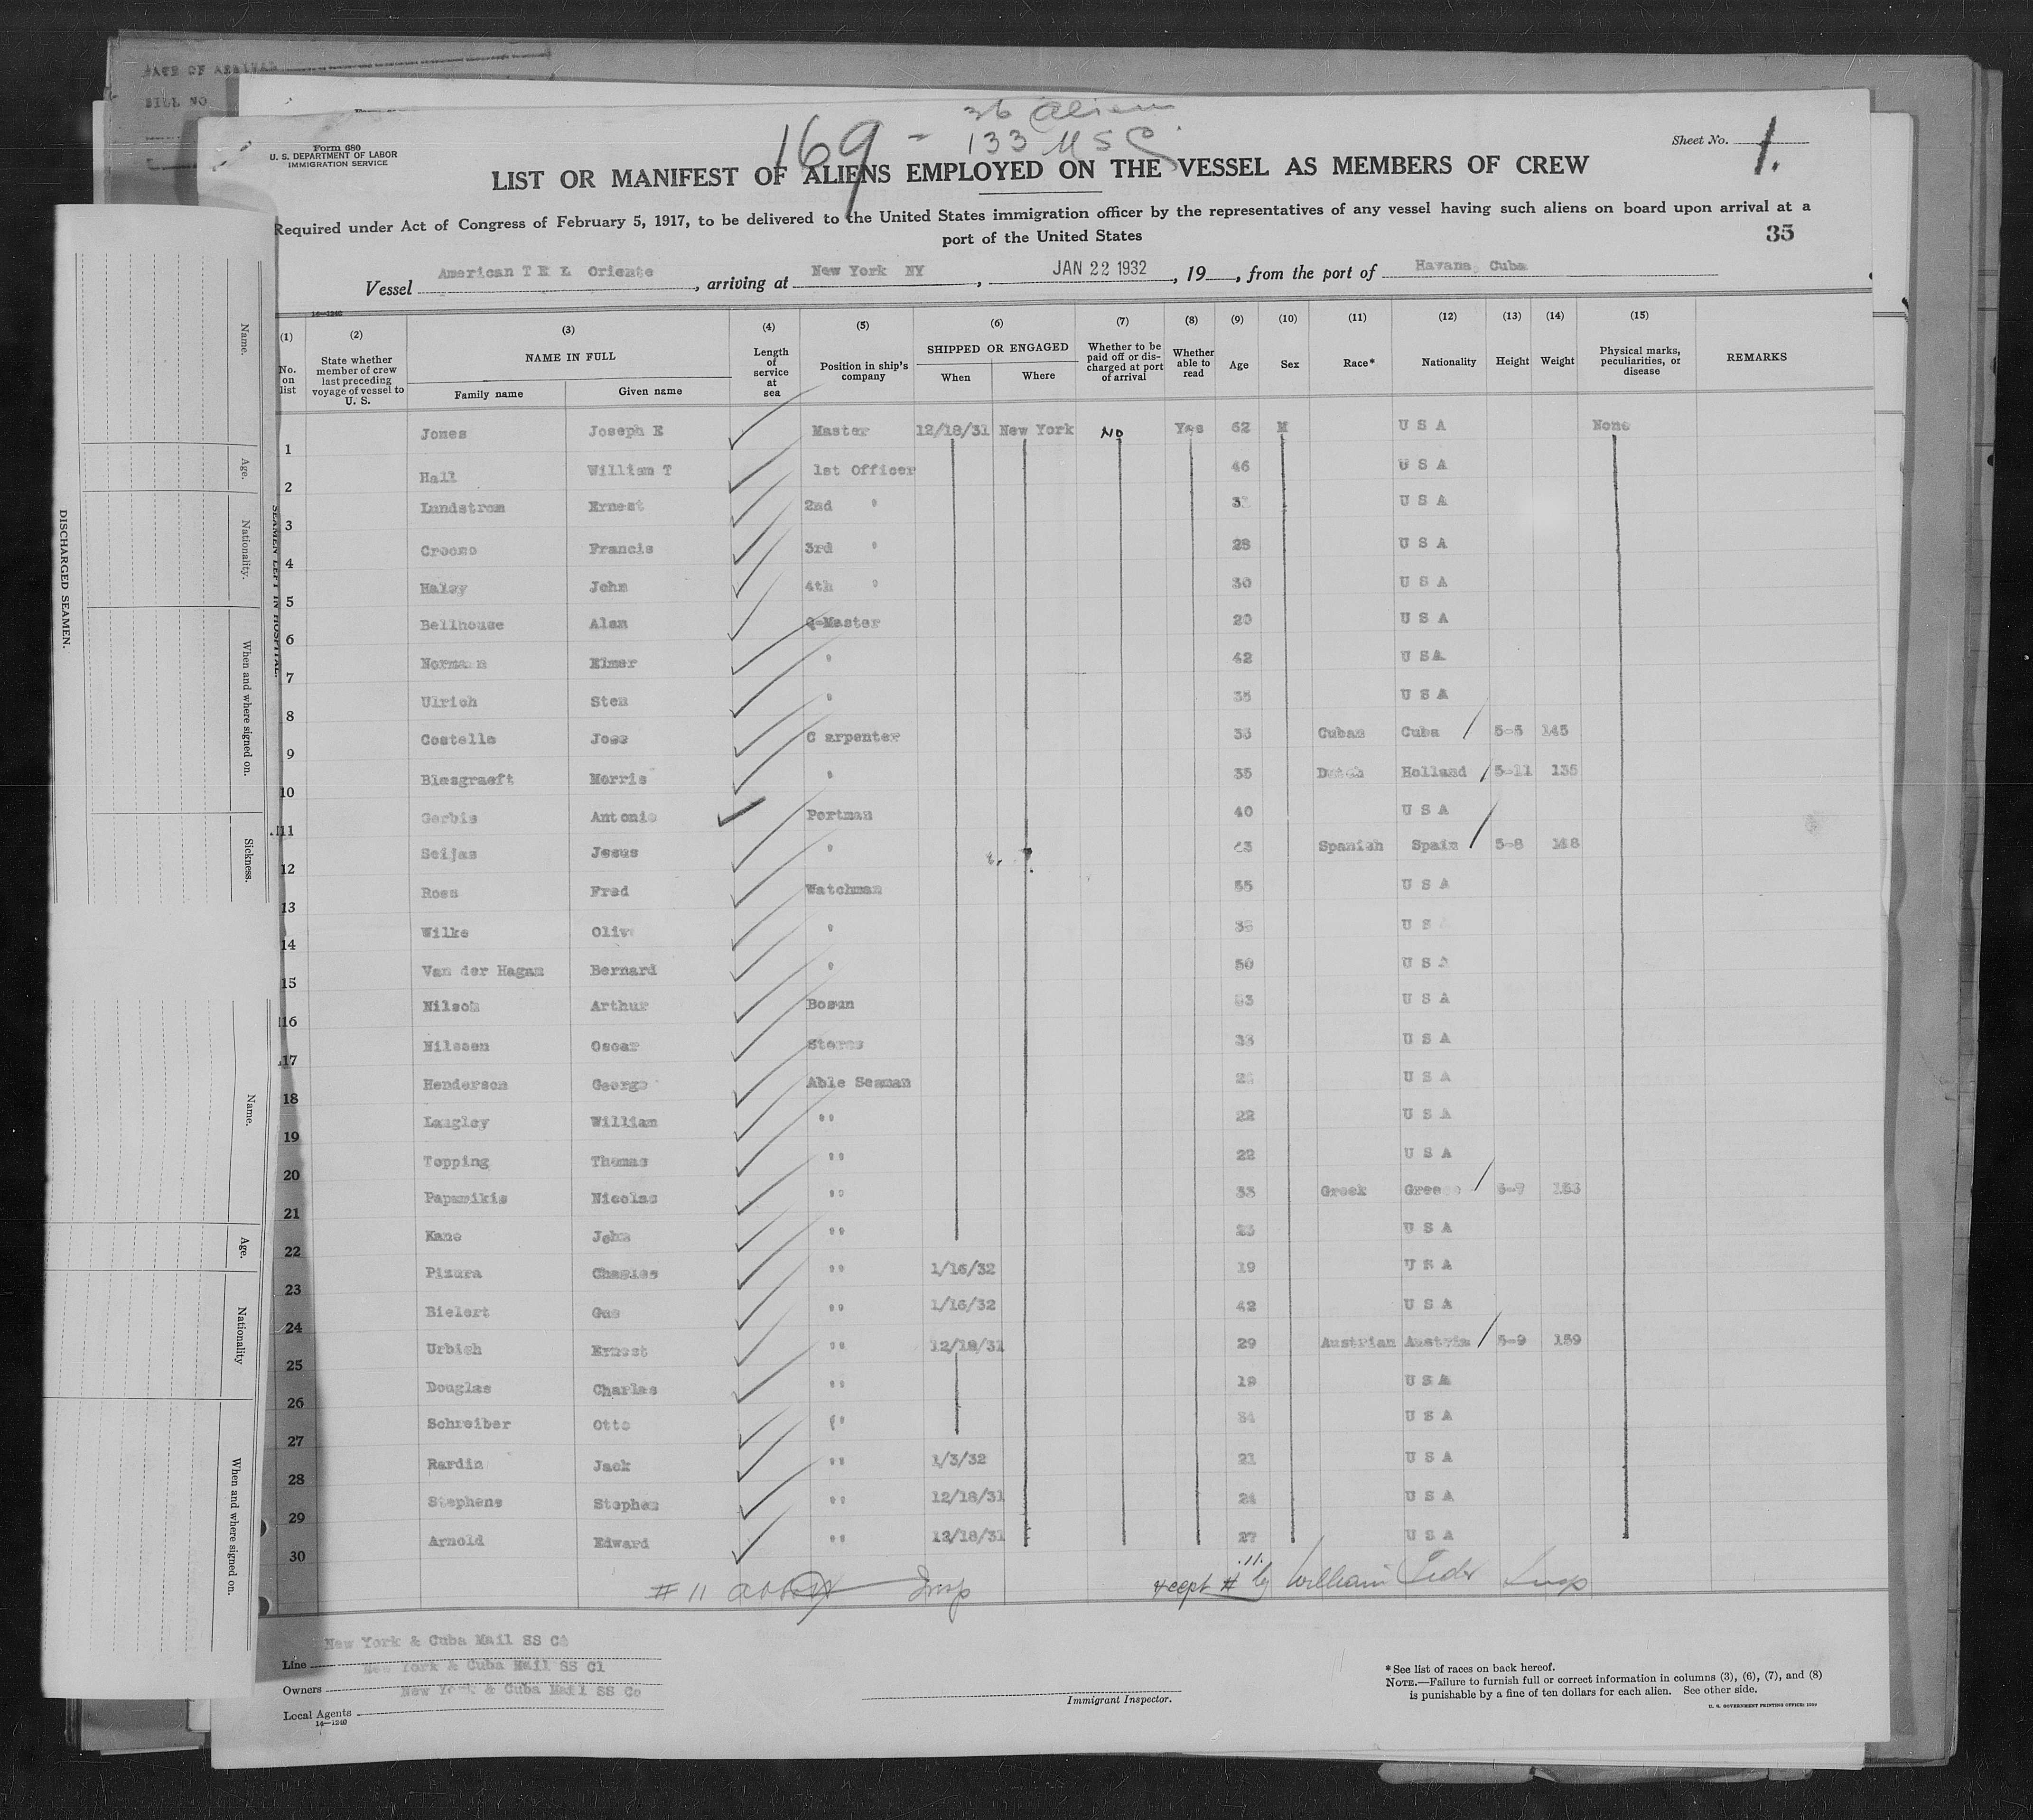 DATE OF ARRIVAL
BILL NO
36 Aliens
169 - 133 U S C
Form 680
U. S. DEPARTMENT OF LABOR
IMMIGRATION SERVICE
Sheet No. 1.
LIST OR MANIFEST OF ALIENS EMPLOYED ON THE VESSEL AS MEMBERS OF CREW
Required under Act of Congress of February 5, 1917, to be delivered to the United States immigration officer by the representatives of any vessel having such aliens on board upon arrival at a
port of the United States
35
Vessel American T E L Oriente, arriving at New York NY, JAN 22 1932, 19, from the port of Havana, Cuba
16—1240
(1) (2) (3) (4) (5) (6) (7) (8) (9) (10) (11) (12) (13) (14) (15)
No. on list
State whether member of crew last preceding voyage of vessel to U. S.
NAME IN FULL
Family name Given name
Length of service at sea
Position in ship's company
SHIPPED OR ENGAGED
When Where
Whether to be paid off or discharged at port of arrival
Whether able to read
Age Sex Race* Nationality Height Weight
Physical marks, peculiarities, or disease
REMARKS
1 Jones Joseph E Master 12/18/31 New York No Yes 62 M U S A None
2 Hall William T 1st Officer 46 U S A
3 Lundstrom Ernest 2nd " U S A
4 Francis 3rd " 28 U S A
5 Haley John 4th " 30 U S A
6 Bellhouse Alan Q-Master U S A
7 Normann Elmer " 42 U SA
8 Ulrich Sten " 35 U S A
9 Costella Jose C arpenter 33 Cuban Cuba 5-5 145
10 Blesgraeft Morris " 35 Dutch Holland 5-11 135
11 Gerbis Antonio Portman 40 U S A
12 Seijas Jesus " Spanish Spain 5-8
13 Ross Fred Watchman 55 U S A
14 Wilke " U S
15 Van der Hagan Bernard " 50 U S A
16 Nilson Arthur Bosun U S A
17 Nilssen Oscar Stores 33 U S A
18 Henderson George Able Seaman U S A
19 Langley William " " 22 U S A
20 Topping Thomas " " 22 U S A
21 Papamikis Nicolas " " 33 Greek Greece
22 Kane John " " 23 U S A
23 Pizura Charles " " 1/16/32 19 U S A
24 Bielert Gus " " 1/16/32 42 U S A
25 Urbich Ernest " " 12/18/31 29 Austrian Austria 5-9 159
26 Douglas Charles " " 19 U S A
27 Schreiber Otto " U S A
28 Rardin Jack " " 1/3/32 21 U S A
29 Stephens Stephen " " 12/18/31 24 U S A
30 Arnold Edward " " 12/18/31 27 U S A
# 11 Insp
# 11 by William Insp
New York & Cuba Mail SS Co
Line New York & Cuba Mail SS Cl
Owners New York & Cuba Mail SS Co
Local Agents
16—1240
Immigrant Inspector.
*See list of races on back hereof.
NOTE.—Failure to furnish full or correct information in columns (3), (6), (7), and (8)
is punishable by a fine of ten dollars for each alien. See other side.
U. S. GOVERNMENT PRINTING OFFICE: 1930
DISCHARGED SEAMEN.
Name.
Age.
Nationality.
When and where signed on.
Sickness.
SEAMEN LEFT IN HOSPITAL.
Name.
Age.
Nationality
When and where signed on.